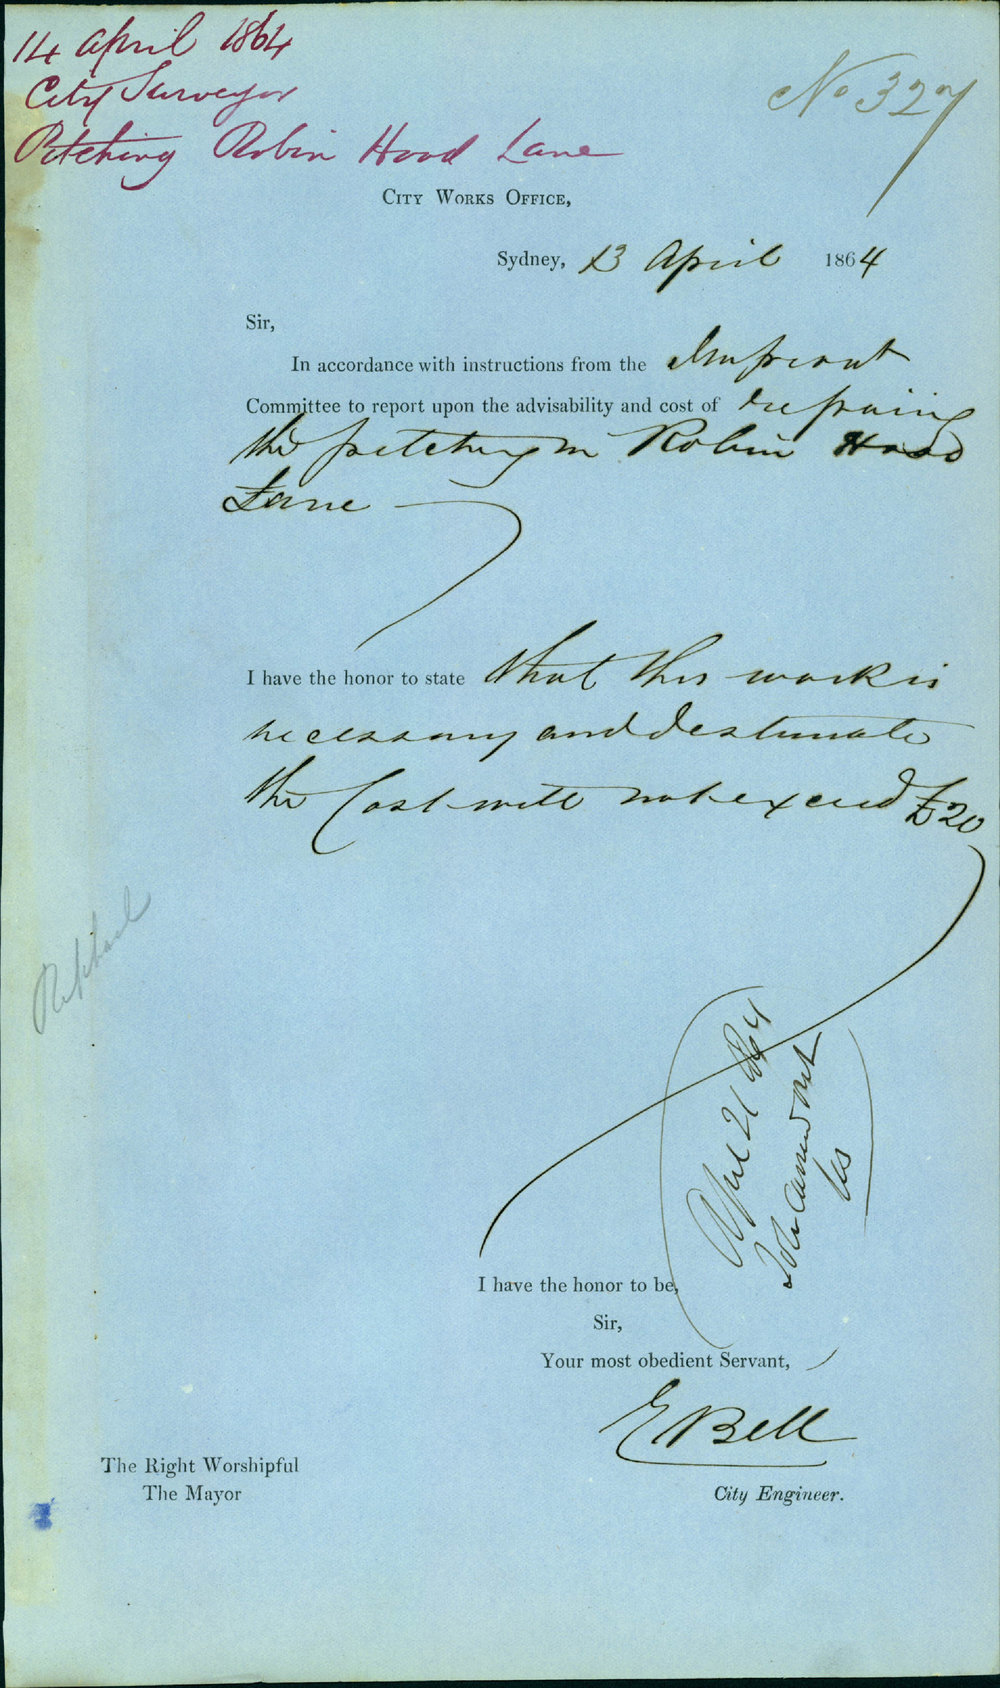 14 April 1864
City Surveyor
Pitching Robin Hood Lane
No 327
City Works Office,
Sydney, 13 April 1864
Sir,
In accordance with instructions from the Improvt
Committee to report upon the advisability and cost of repairing
the pitching in Robin Hood
Lane
I have the honor to state that this work is
necessary and I estimate
the Cost will not exceed £20
April 21 1864
I have the honor to be,
Sir,
Your most obedient Servant,
E Bell
The Right Worshipful
The Mayor
City Engineer.